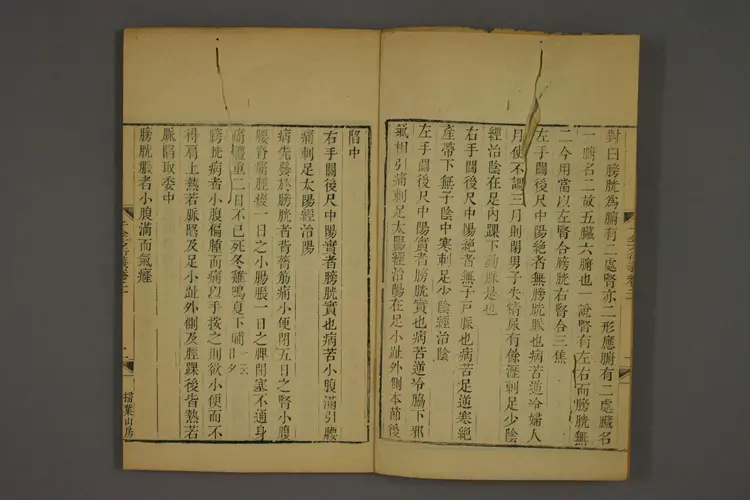 對曰膀胱爲腑有二處腎亦二形應腑有二處臟名
一腑名二故五臟六腑也一說腎有左右而膀胱無
二今用當以左腎合膀胱右腎合三焦
左手關後尺中陽絕者無膀胱脈也病苦逆冷婦人
月使不調三月則閉男子失精尿有餘瀝刺足少陰
經治陰在足內踝下動脈是也
右手關後尺中陽絕者無子戶脈也病苦足逆寒絕
產帶下無子陰中寒刺足少陰經治陰
左手關後尺中陽實者膀胱實也病苦逆冷脇下邪
氣相引痛刺足太陽經治陽在足小趾外側本節後
陷中
右手關後尺中陽實者膀胱實也病苦小腹滿引腰
痛刺足太陽經治陽
病先發於膀胱者背膂筋痛小便閉五日之腎小腹
腰脊痛脛痠一日之小腸脹一日之脾閉塞不通身
痛體重二日不已死冬雞鳴夏下晡一云日夕
膀胱病者小腹偏腫而痛以手按之則欲小便而不
得肩上熱若脈陷及足小趾外側及脛踝後皆熱若
脈陷取委中
膀胱脹者小腹滿而氣癃
二
掃葉山房